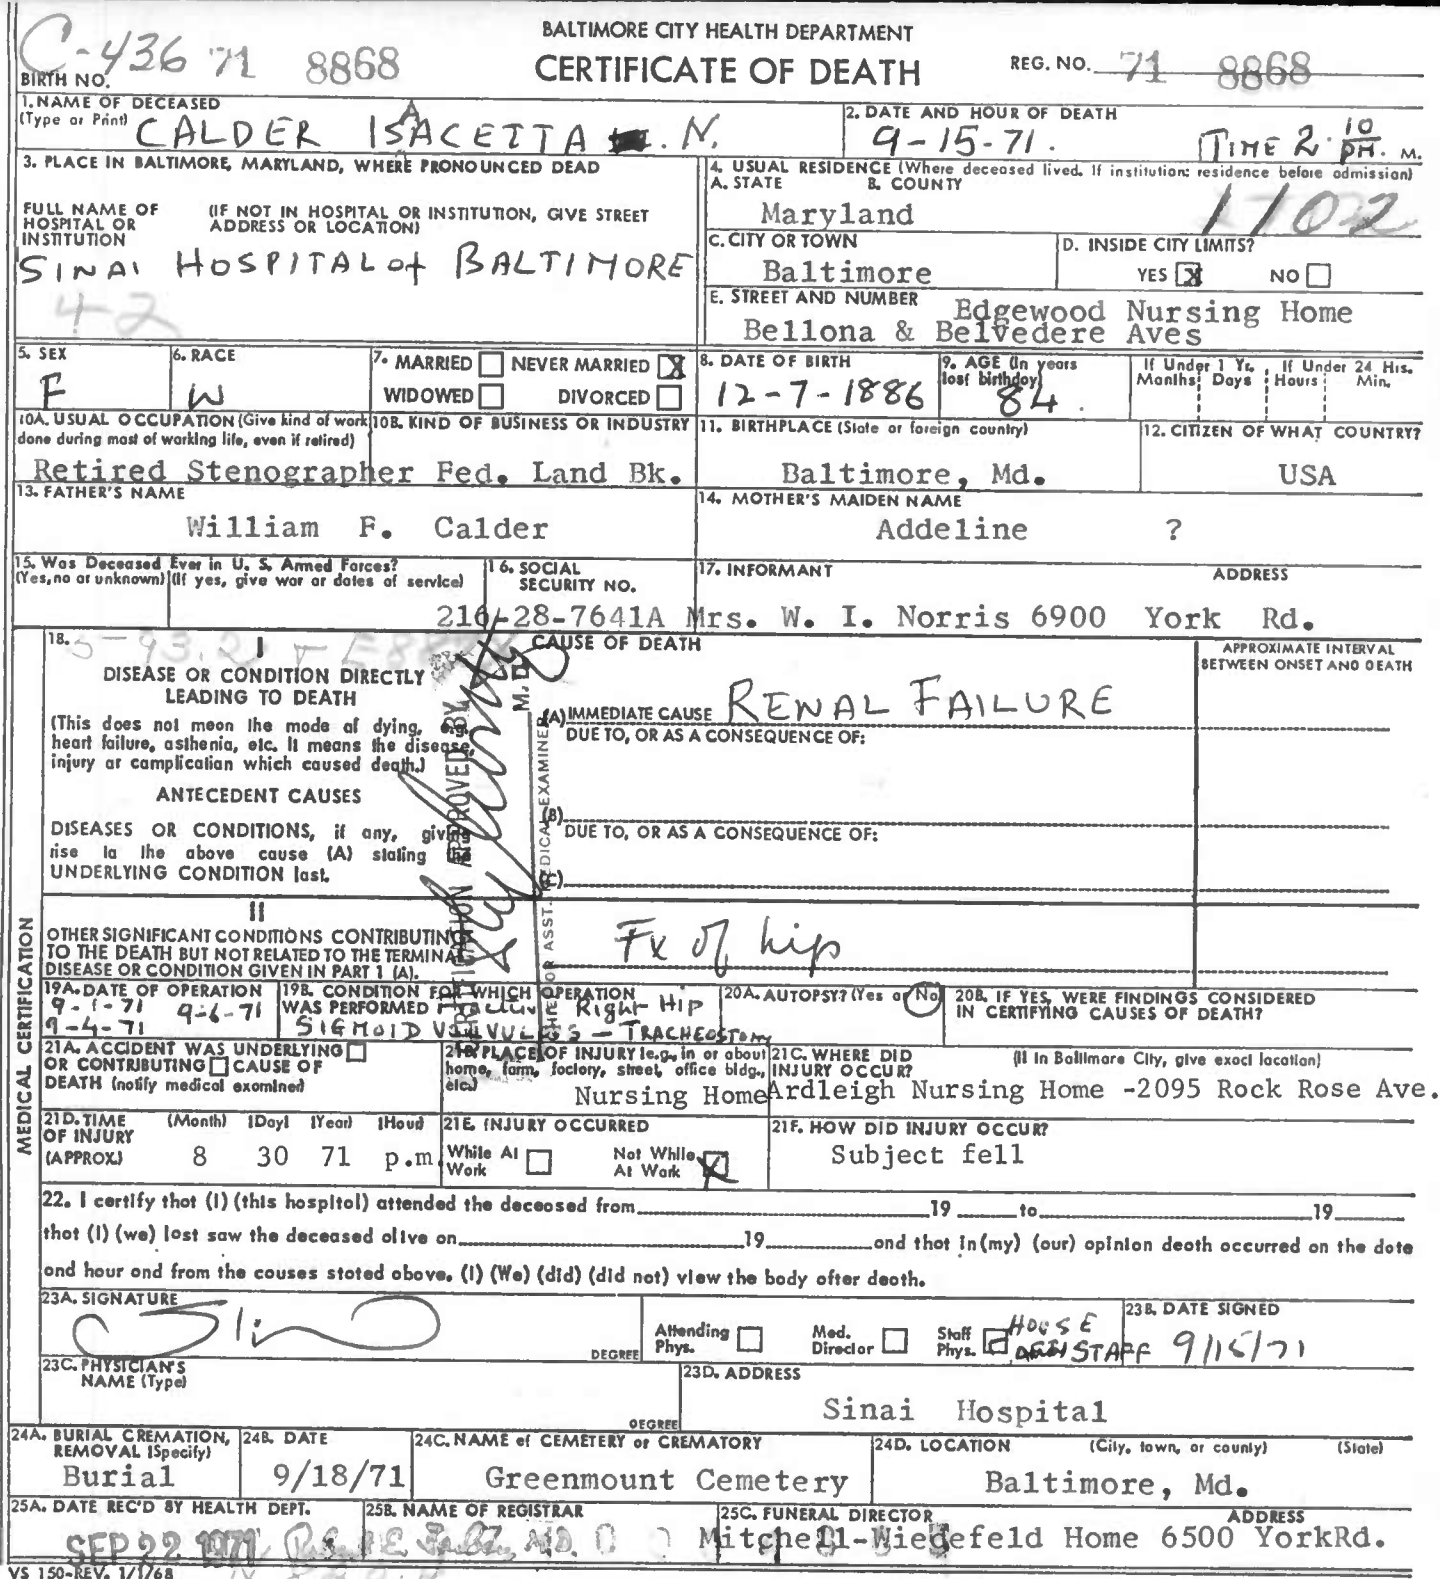 BALTIMORE CITY HEALTH DEPARTMENT
CERTIFICATE OF DEATH
C-436 71 8868
BIRTH NO.
REG. NO. 71 8868
1. NAME OF DECEASED
(Type or Print) CALDER ISACETTA N.
A
2. DATE AND HOUR OF DEATH
9-15-71. TIME 2.10 PM. M.
3. PLACE IN BALTIMORE, MARYLAND, WHERE PRONOUNCED DEAD
FULL NAME OF HOSPITAL OR INSTITUTION
(IF NOT IN HOSPITAL OR INSTITUTION, GIVE STREET ADDRESS OR LOCATION)
SINAI HOSPITAL of BALTIMORE
42
4. USUAL RESIDENCE (Where deceased lived. If institution: residence before admission)
A. STATE B. COUNTY
Maryland 1102
C. CITY OR TOWN
Baltimore
D. INSIDE CITY LIMITS?
YES X NO
E. STREET AND NUMBER Edgewood Nursing Home
Bellona & Belvedere Aves
5. SEX
F
6. RACE
W
7. MARRIED NEVER MARRIED X
WIDOWED DIVORCED
8. DATE OF BIRTH
12-7-1886
9. AGE (In years last birthday)
84
If Under 1 Yr. If Under 24 Hrs.
Months Days Hours Min.
10A. USUAL OCCUPATION (Give kind of work done during most of working life, even if retired)
10B. KIND OF BUSINESS OR INDUSTRY
Retired Stenographer Fed. Land Bk.
11. BIRTHPLACE (State or foreign country)
Baltimore, Md.
12. CITIZEN OF WHAT COUNTRY?
USA
13. FATHER'S NAME
William F. Calder
14. MOTHER'S MAIDEN NAME
Addeline ?
15. Was Deceased Ever in U. S. Armed Forces?
(Yes, no or unknown) (If yes, give war or dates of service)
16. SOCIAL SECURITY NO.
216-28-7641A
17. INFORMANT ADDRESS
Mrs. W. I. Norris 6900 York Rd.
MEDICAL CERTIFICATION
18.
I
DISEASE OR CONDITION DIRECTLY
LEADING TO DEATH
(This does not mean the mode of dying, e.g.
heart failure, asthenia, etc. It means the disease,
injury or complication which caused death.)
ANTECEDENT CAUSES
DISEASES OR CONDITIONS, if any, giving
rise to the above cause (A) stating the
UNDERLYING CONDITION last.
CERTIFICATION APPROVED BY
M. D.
CHIEF OR ASST. MEDICAL EXAMINER
CAUSE OF DEATH
APPROXIMATE INTERVAL
BETWEEN ONSET AND DEATH
(A) IMMEDIATE CAUSE RENAL FAILURE
DUE TO, OR AS A CONSEQUENCE OF:
(B)
DUE TO, OR AS A CONSEQUENCE OF:
(C)
II
OTHER SIGNIFICANT CONDITIONS CONTRIBUTING
TO THE DEATH BUT NOT RELATED TO THE TERMINAL
DISEASE OR CONDITION GIVEN IN PART 1 (A).
Fx of hip
19A. DATE OF OPERATION
9-1-71 9-6-71
9-4-71
19B. CONDITION FOR WHICH OPERATION
WAS PERFORMED Right Hip
SIGMOID VOLVULUS - TRACHEOSTOMY
20A. AUTOPSY? (Yes or No)
20B. IF YES, WERE FINDINGS CONSIDERED
IN CERTIFYING CAUSES OF DEATH?
21A. ACCIDENT WAS UNDERLYING
OR CONTRIBUTING CAUSE OF
DEATH (notify medical examiner)
21B. PLACE OF INJURY (e.g., in or about
home, farm, factory, street, office bldg.,
etc.) Nursing Home
21C. WHERE DID INJURY OCCUR? (If in Baltimore City, give exact location)
Ardleigh Nursing Home -2095 Rock Rose Ave.
21D. TIME OF INJURY (APPROX.)
(Month) (Day) (Year) (Hour)
8 30 71 p.m.
21E. INJURY OCCURRED
While At Work Not While At Work X
21F. HOW DID INJURY OCCUR?
Subject fell
22. I certify that (I) (this hospital) attended the deceased from 19 to 19
that (I) (we) last saw the deceased alive on 19 and that in (my) (our) opinion death occurred on the date
and hour and from the causes stated above. (I) (We) (did) (did not) view the body after death.
23A. SIGNATURE
DEGREE
Attending Phys. Med. Director Staff Phys. HOUSE STAFF
23B. DATE SIGNED
9/15/71
23C. PHYSICIAN'S NAME (Type)
DEGREE
23D. ADDRESS
Sinai Hospital
24A. BURIAL CREMATION, REMOVAL (Specify)
Burial
24B. DATE
9/18/71
24C. NAME of CEMETERY or CREMATORY
Greenmount Cemetery
24D. LOCATION (City, town, or county) (State)
Baltimore, Md.
25A. DATE REC'D BY HEALTH DEPT.
SEP 22 1971
25B. NAME OF REGISTRAR
25C. FUNERAL DIRECTOR ADDRESS
Mitchell-Wiedefeld Home 6500 YorkRd.
VS 150-REV. 1/1/68